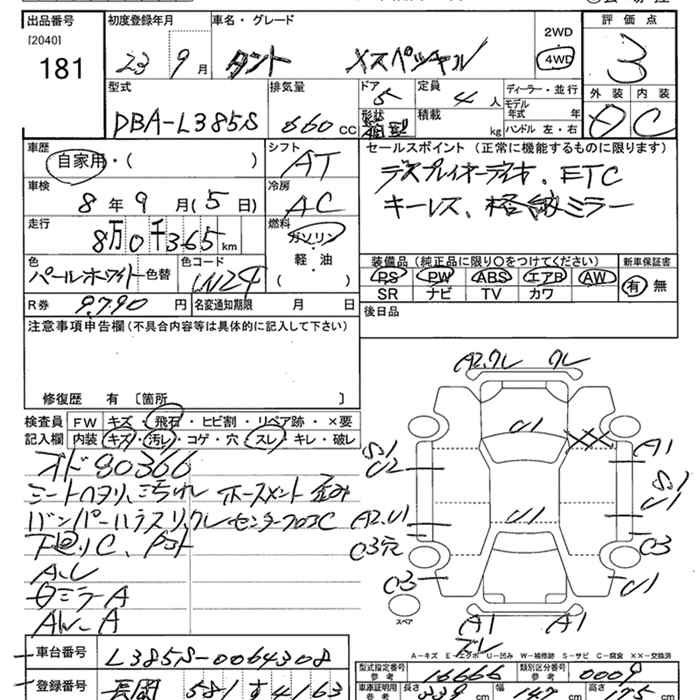 出品番号
[2040]
181
初度登録年月
23 9月
車名・グレード
タント Xスペシャル
2WD
4WD
評価点
3
外装 内装
D C
型式
DBA-L385S
排気量
660 CC
ドア
5
形状
定員
4 人
積載
kg
ディーラー・並行
モデル年式 年
ハンドル 左・右
車歴
自家用・( )
シフト
AT
車検
8年9月(5日)
冷房
AC
走行
8万0千365km
燃料
ガソリン
軽・油
( )
色
パールホワイト 色替
色コード
W24
R券 9,790円
名変通知期限 月 日
セールスポイント(正常に機能するものに限ります)
ディスプレイオーディオ、ETC
キーレス、格納ミラー
装備品(純正品に限り○をつけてください)
PS PW ABS エアB AW
SR ナビ TV カワ
新車保証書
有 無
後日品
注意事項申告欄(不具合内容等は具体的に記入して下さい)
修復歴 有〔箇所 〕
検査員記入欄
FW キズ・飛石・ヒビ割・リペア跡・×要
内装 キズ・汚レ・コゲ・穴・スレ・キレ・破レ
オド80366
下廻りC、
ミラーA
A2,クレ クレ
U1
S1
U2
A1
S1
U1
A2,U1
U1
C3穴
C3
C3
U1
スペア
A1
A1
A-キズ E-エクボ U-凹み W-補修跡 S-サビ C-腐食 XX-交換済
車台番号 L385S-0064308
登録番号 長岡 581 す 4163
型式指定番号 参考 16666
類別区分番号 参考 0009
車庫証明用 参考 長さ 339 cm 幅 147 cm 高さ 175 cm